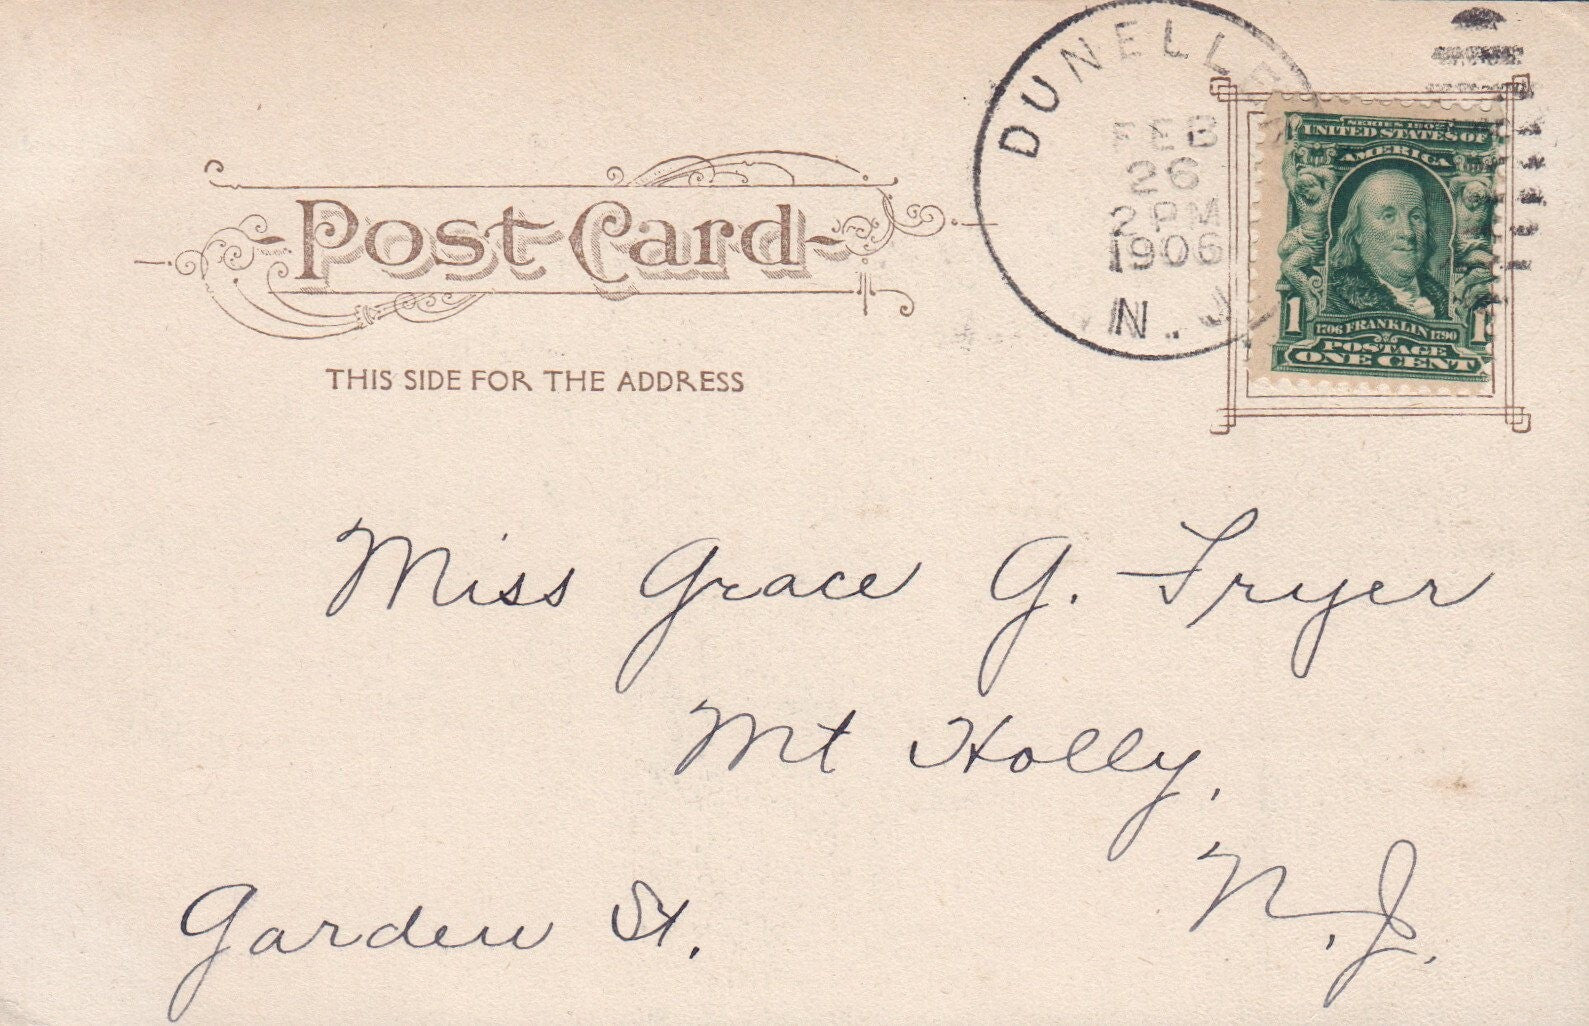 Post Card
THIS SIDE FOR THE ADDRESS
DUNELLEN
FEB
26
2 PM
1906
N.J.
SERIES 1902
UNITED STATES OF
AMERICA
1 1
1706 FRANKLIN 1790
POSTAGE
ONE CENT
Miss Grace G. Fryer
Mt Holly,
N.J.
Garden St.